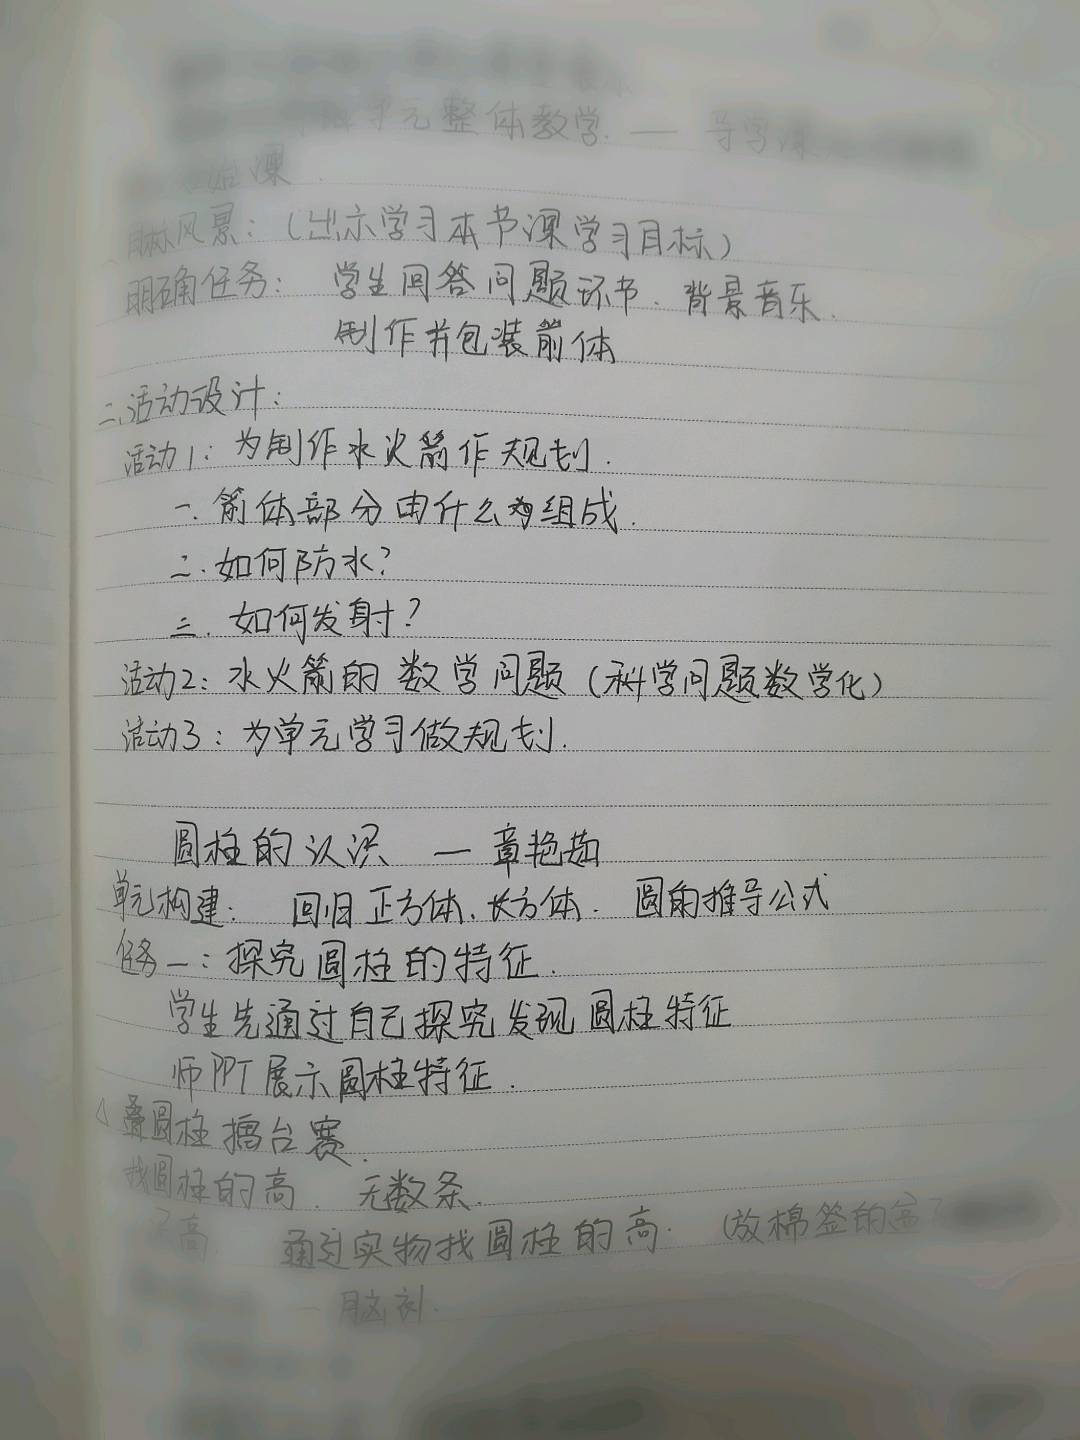 单元整体教学 — 导学课
始课
目标风景：（出示学习本节课学习目标）
明确任务：学生回答问题环节、背景音乐.
制作并包装箭体
二、活动设计：
活动1：为制作水火箭作规划.
一. 箭体部分由什么组成.
二. 如何防水？
三. 如何发射？
活动2：水火箭的数学问题（科学问题数学化）
活动3：为单元学习做规划.
圆柱的认识 — 章艳茹
单元构建：回归正方体、长方体. 圆的推导公式
任务一：探究圆柱的特征.
学生先通过自己探究发现圆柱特征
师PPT展示圆柱特征.
叠圆柱擂台赛.
找圆柱的高. 无数条.
高. 通过实物找圆柱的高. （放棉签的盒